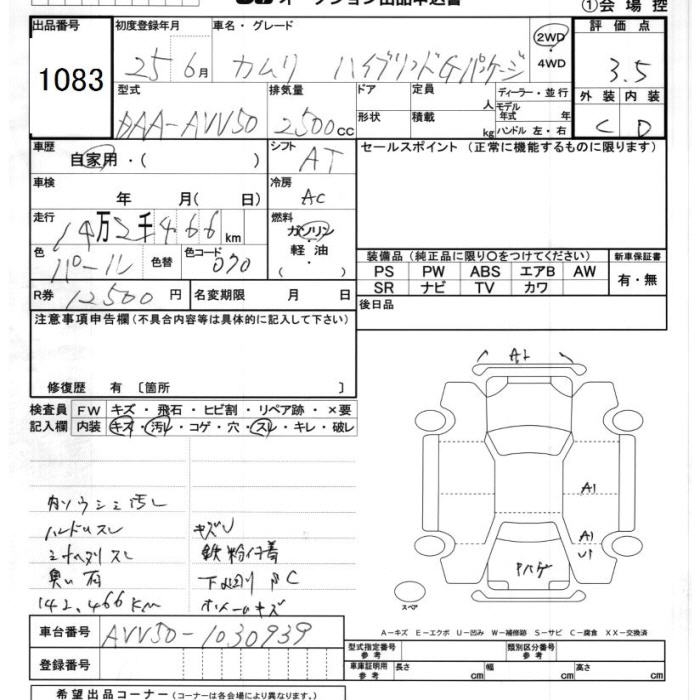 ①会場控
出品番号 初度登録年月 車名・グレード 評価点
1083 25 6月 カムリ ハイブリッドGパッケージ 2WD ・ 4WD 3.5
型式 排気量 ドア 定員 人 ディーラー・並行 外装 内装
DAA-AVV50 2500cc 形状 積載 kg モデル年式 年 ハンドル 左・右 C D
車歴 シフト セールスポイント (正常に機能するものに限ります)
自家用・( ) AT
車検 冷房
年 月( 日) AC
走行 燃料
14万2千466km ガソリン・軽油・( )
色 パール 色替 色コード 070
装備品 (純正品に限り○をつけてください) 新車保証書
PS PW ABS エアB AW 有・無
SR ナビ TV カワ
R券 12500円 名変期限 月 日
後日品
注意事項申告欄 (不具合内容等は具体的に記入して下さい)
修復歴 有 〔箇所 〕
検査員記入欄 FW キズ・飛石・ヒビ割・リペア跡・×要
内装 キズ・汚れ・コゲ・穴・スレ・キレ・破レ
A1
A1
A1
U1
ハンドルスレ キズU
鉄粉付着
臭い有 C
142,466KM
スペア
A-キズ E-エクボ U-凹み W-補修跡 S-サビ C-腐食 XX-交換済
車台番号 AVV50-1030939
型式指定番号 参考 類別区分番号 参考
登録番号
車庫証明用 参考 長さ cm 幅 cm 高さ cm
希望出品コーナー (コーナーは各会場により異なります。)